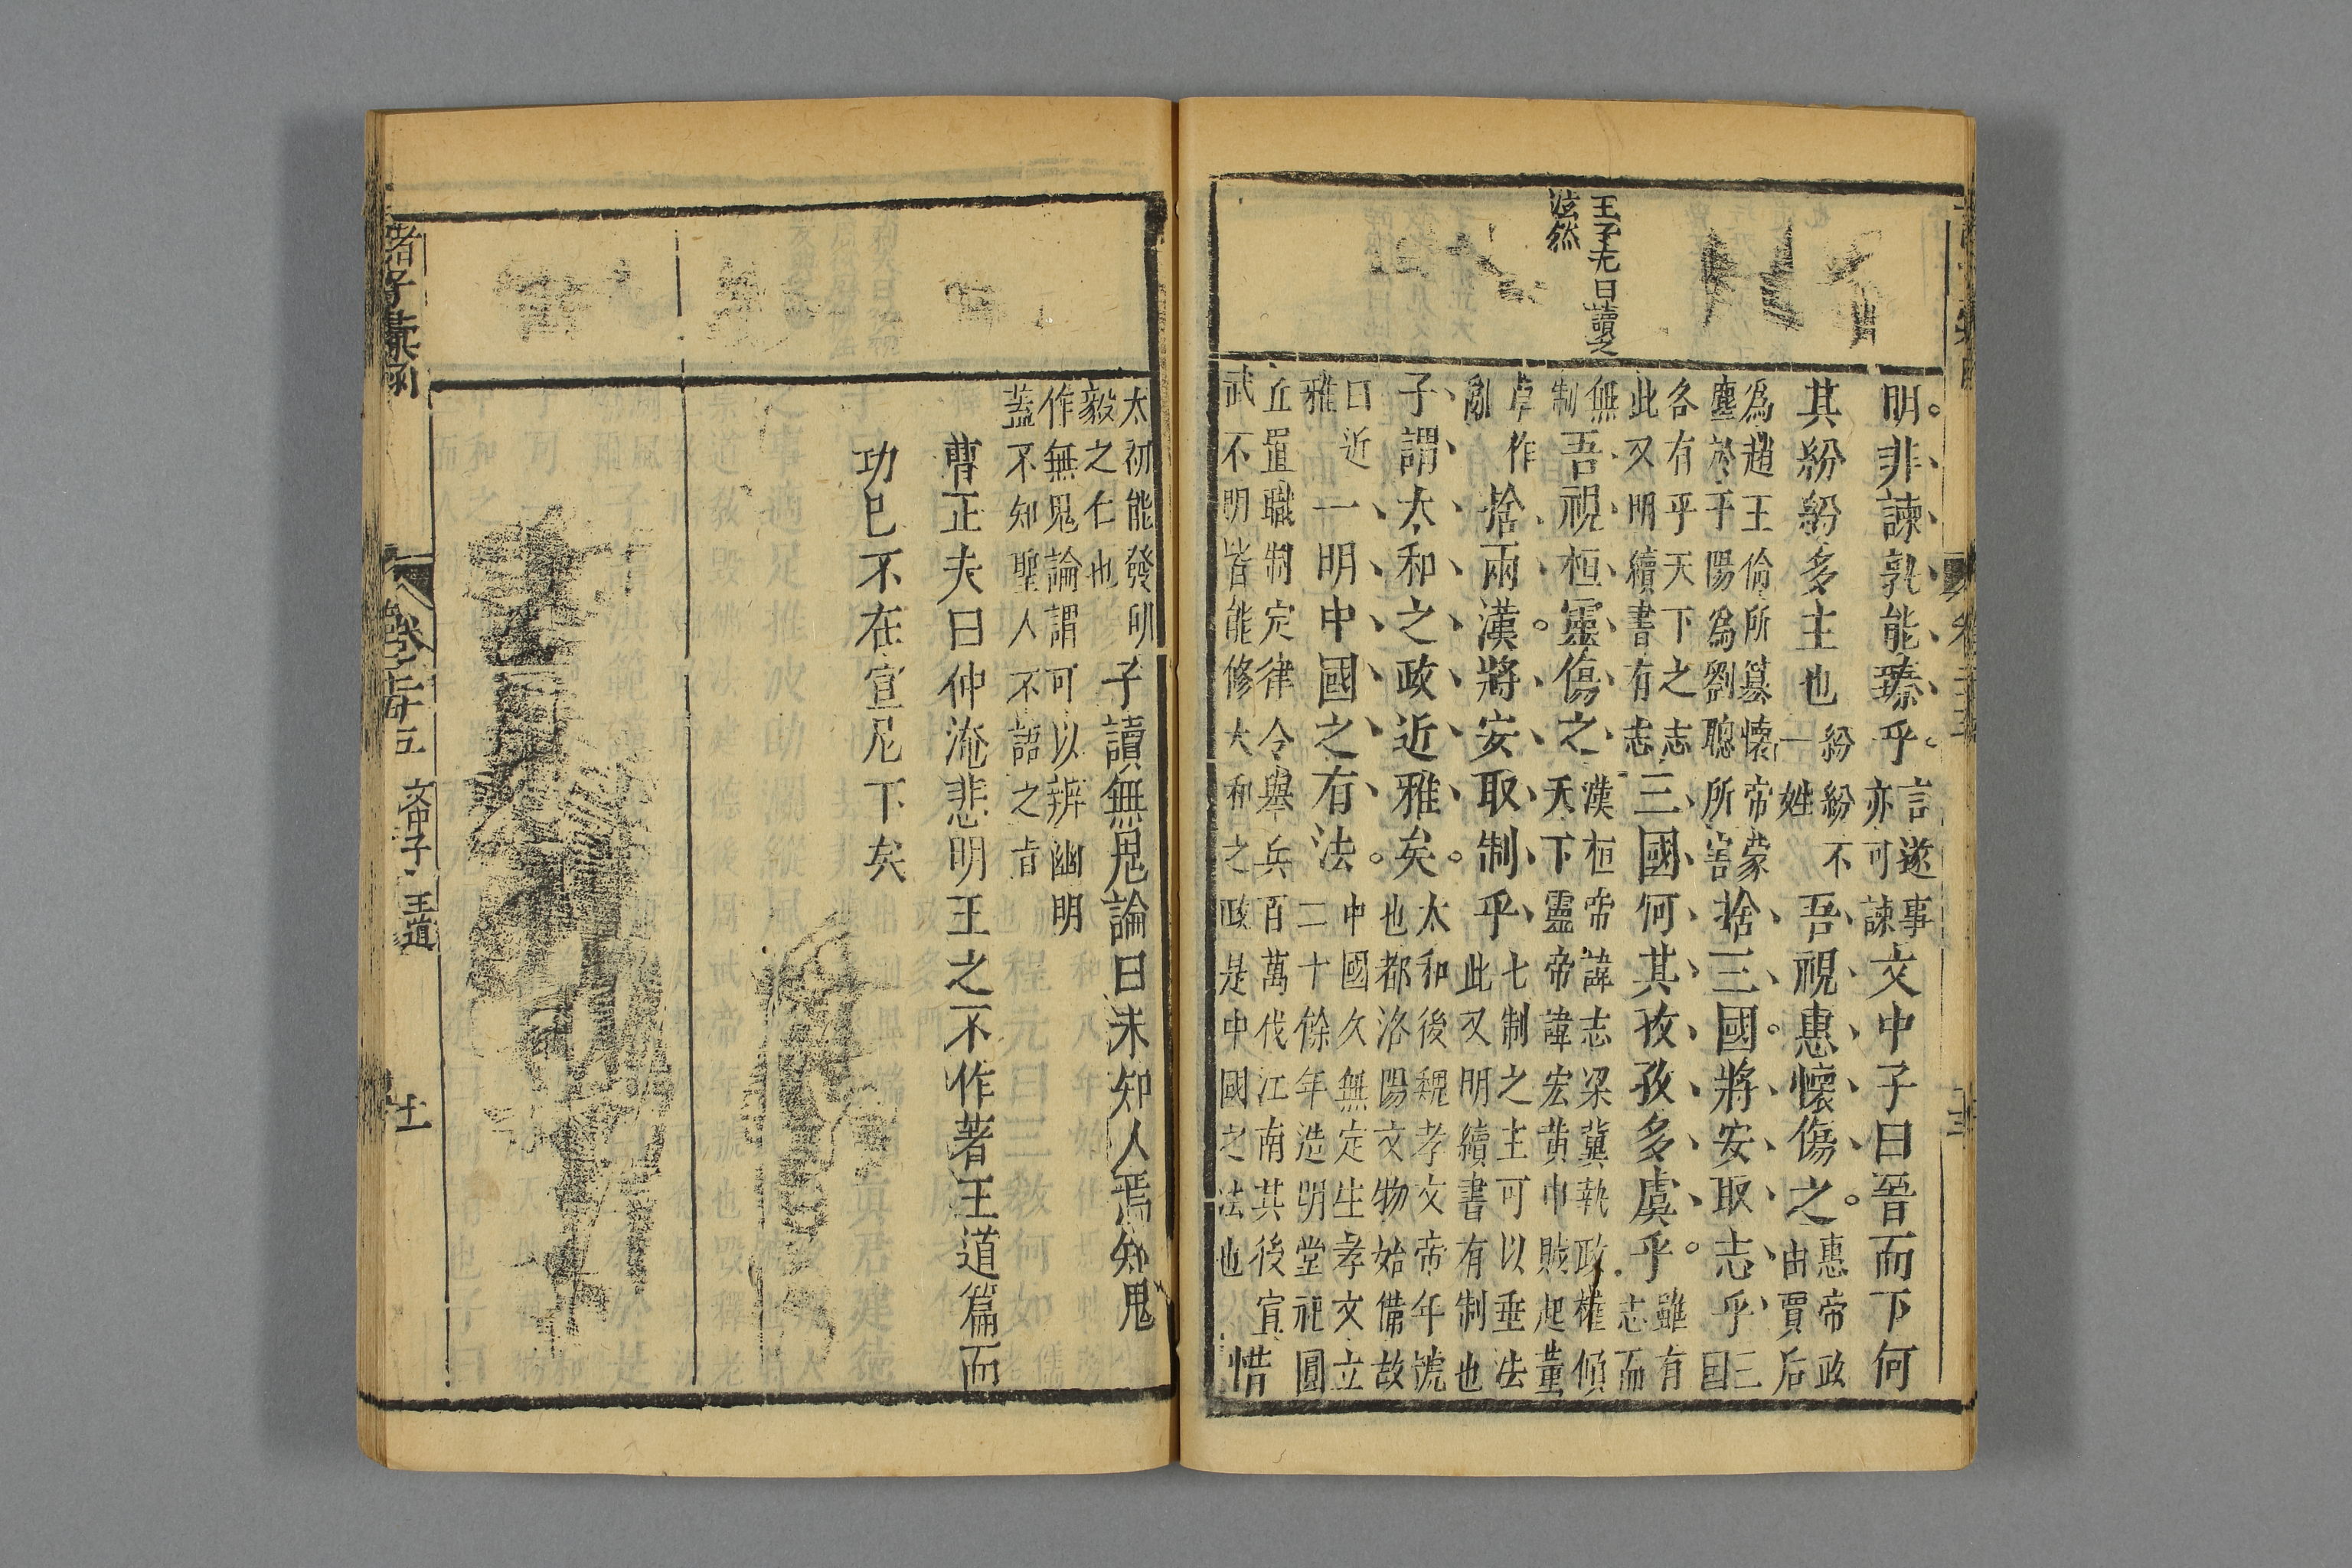 王子充曰讀之
泫然
明非諫孰能臻乎言遂事亦可諫文中子曰晉而下何
其紛紛多主也紛紛不一姓吾視惠懷傷之惠帝政由賈后
為趙王倫所篡懷帝蒙塵於平陽為劉聰所害捨三國將安取志乎三國
各有乎天下之志此又明續書有志三國何其孜孜多虞乎雖有志而
無制吾視桓靈傷之漢桓帝諱志梁冀執政權傾天下靈帝諱宏黃巾賊起董
卓作亂捨兩漢將安取制乎七制之主可以垂法此又明續書有制也
子謂太和之政近雅矣太和後魏孝文帝年號也都洛陽文物始備故
曰近雅一明中國之有法中國久無定生孝文立二十餘年造明堂祀圜
丘置職制定律令舉兵百萬伐江南其後宣武不明皆能修大和之政是中國之法也惜
太初能發明
毅之仁也
子讀無鬼論曰未知人焉知鬼
作無鬼論謂可以辨幽明
蓋不知聖人不語之旨
曹正夫曰仲淹悲明王之不作著王道篇而
功已不在宣尼下矣
諸子彙函
卷之二十三
文中子
王道
十一